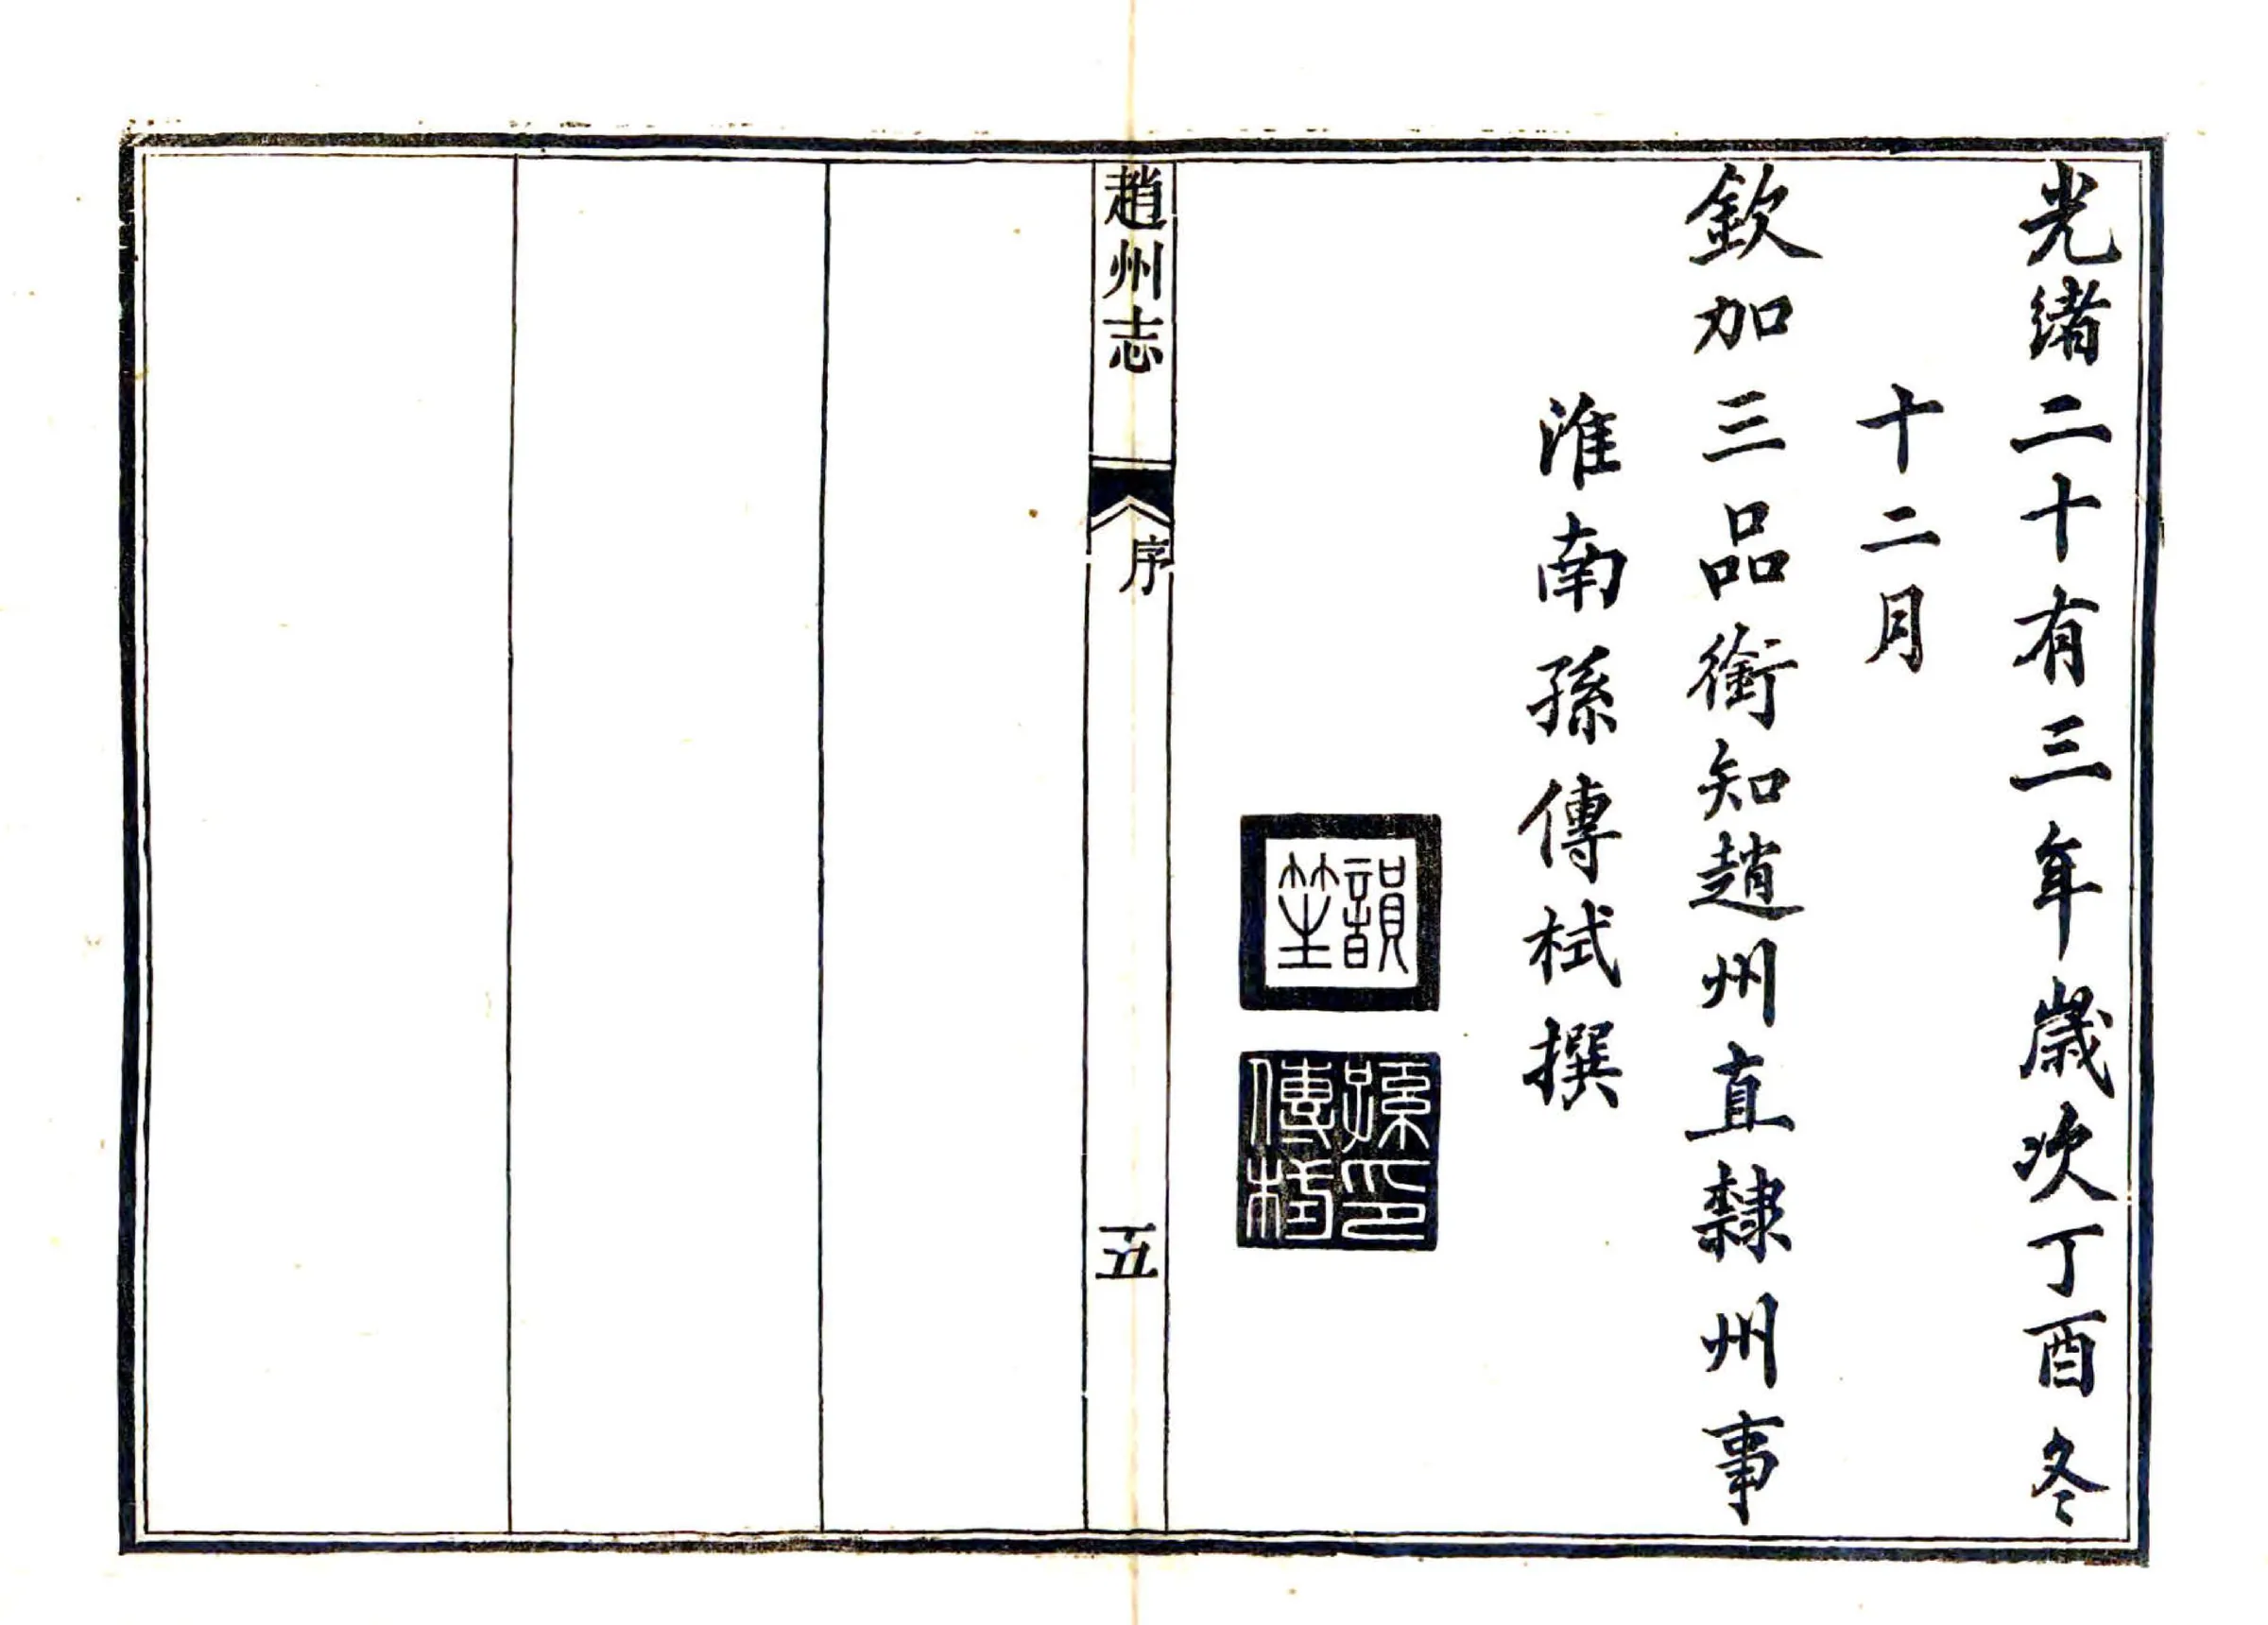 光緒二十有三年歲次丁酉冬
十二月
欽加三品銜知趙州直隸州事
淮南孫傳栻撰
韻笙
孫印傳栻
趙州志
序
五